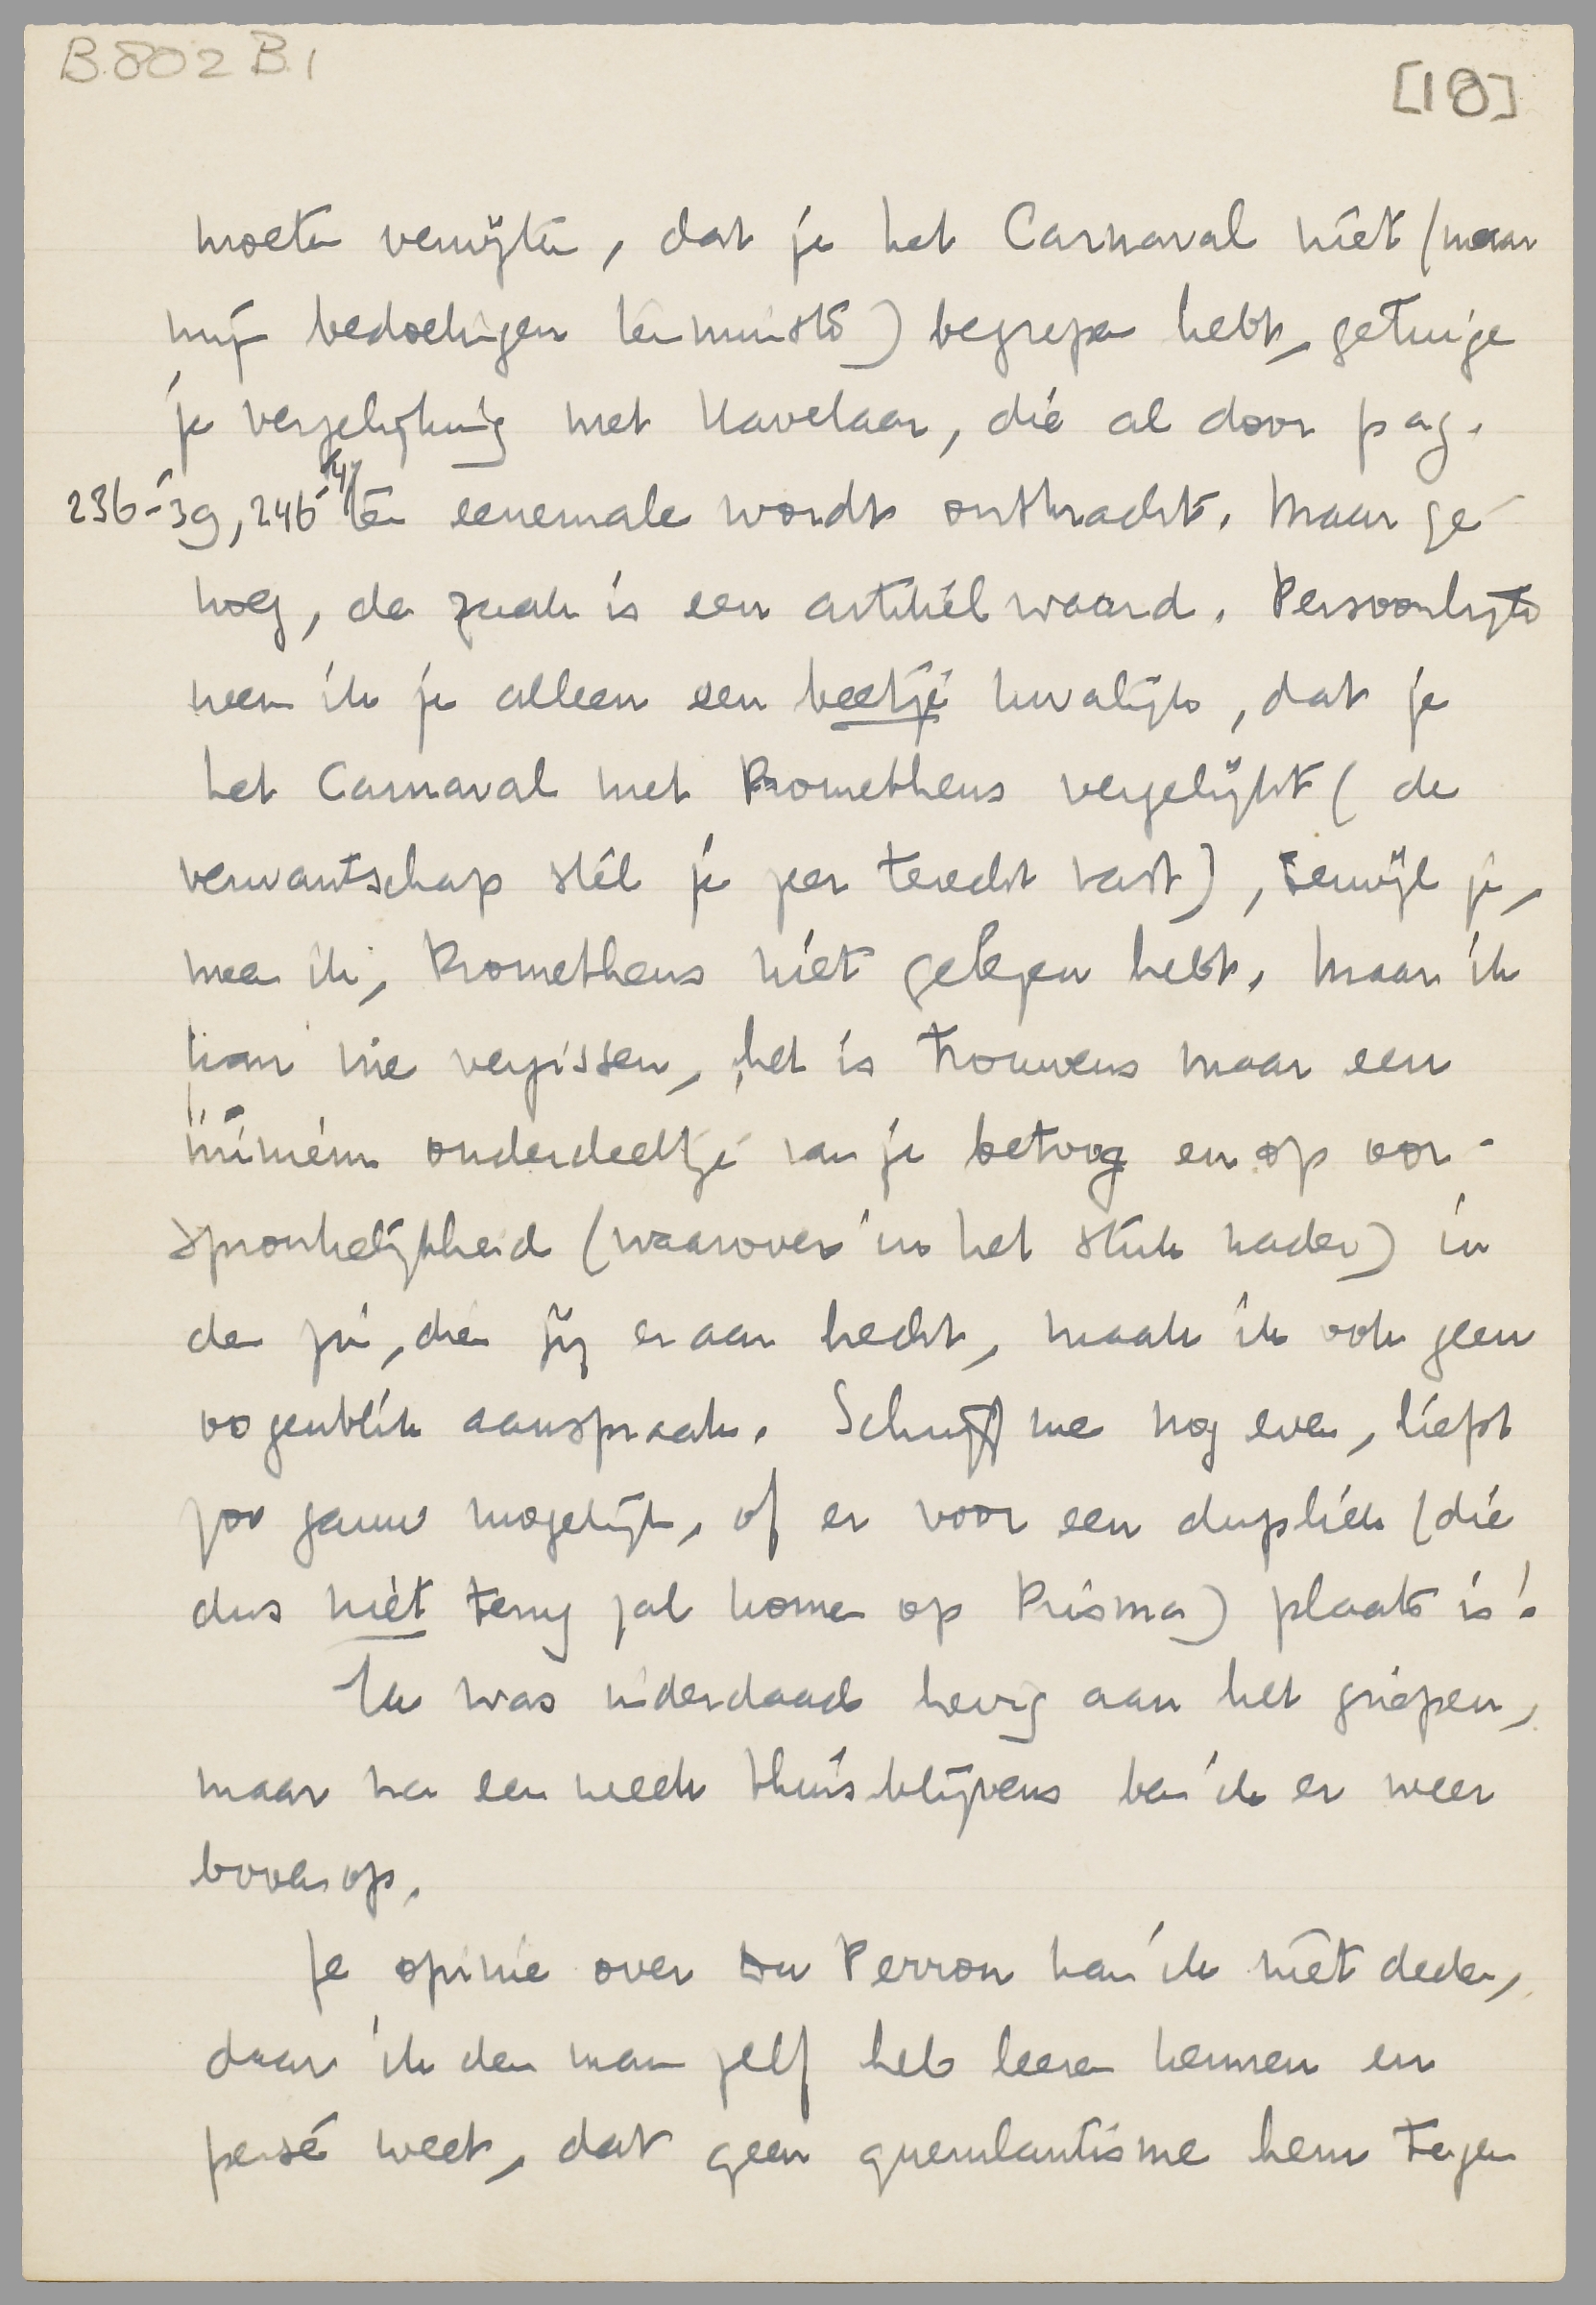 B.802 B.1
[18]
moeten verwijten, dat je het Carnaval niet (naar
mijn bedoelingen tenminste) begrepen hebt, getuige
je vergelijking met Havelaar, die al door pag.
236-'39, 246-'47 ten eenenmale wordt ontkracht. Maar ge-
noeg, de zaak is een artikel waard. Persoonlijk
neem ik je alleen een beetje kwalijk, dat je
het Carnaval met Prometheus vergelijkt (de
verwantschap stel je zeer terecht vast), terwijl je,
meen ik, Prometheus niet gelezen hebt. Maar ik
kan me vergissen, het is trouwens maar een
miniem onderdeeltje van je betoog en op oor-
spronkelijkheid (waarover in het stuk nader) in
den zin, dien jij eraan hecht, maak ik ook geen
oogenblik aanspraak. Schrijf me nog even, liefst
zoo gauw mogelijk, of er voor een dupliek (die
dus niet terug zal komen op Prisma) plaats is!
Ik was inderdaad hevig aan het griepen,
maar na een week thuisblijvens ben ik er weer
bovenop.
Je opinie over Du Perron kan ik niet deelen,
daar ik den man zelf heb leeren kennen en
persé weet, dat geen querulantisme hem tegen